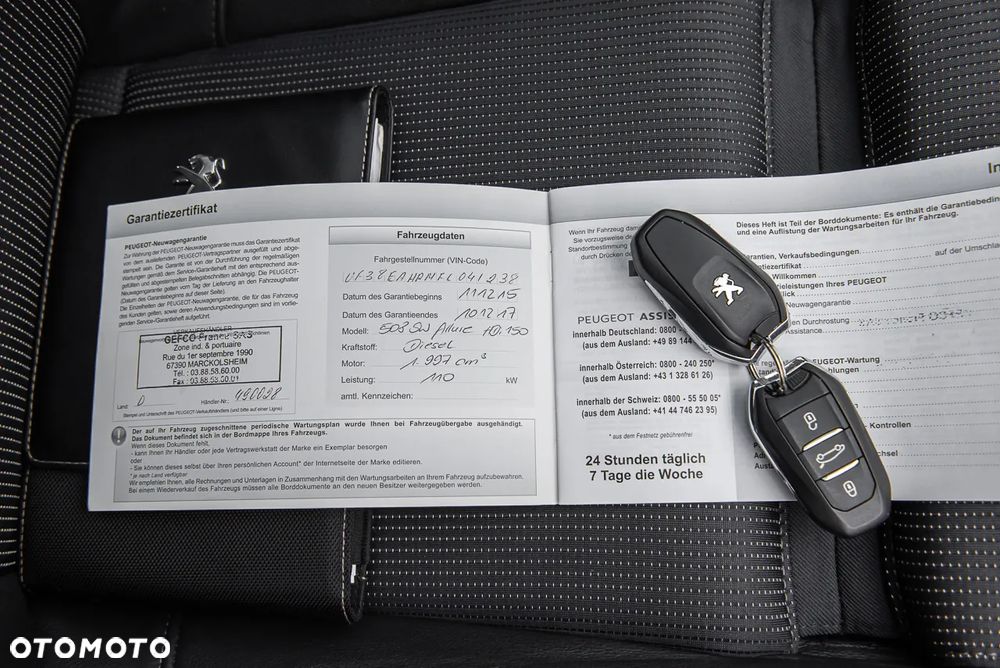 Garantiezertifikat
PEUGEOT-Neuwagengarantie
Zur Wahrung der PEUGEOT-Neuwagengarantie muss das Garantiezertifikat
von dem ausliefernden PEUGEOT-Vertragspartner ausgefüllt und abge-
stempelt sein. Die Garantie ist von der Durchführung der regelmäßigen
Wartungen gemäß dem Service-Garantieheft mit den entsprechend aus-
gefüllten und abgestempelten Belegabschnitten abhängig. Die PEUGEOT-
Neuwagengarantie gelten vom Tag der Lieferung an den Fahrzeughalter
(Datum des Garantiebeginns auf dieser Seite).
Die Einzelheiten der PEUGEOT-Neuwagengarantie, die für das Fahrzeug
des Kunden gelten, sowie deren Anwendungsbedingungen sind im vorlie-
genden Service-Garantieheft aufgeführt.
VERKAUFSHÄNDLER
GEFCO France SAS
Zone ind. & portuaire
Rue du 1er septembre 1990
67390 MARCKOLSHEIM
Tél. : 03.88.58.60.00
Fax : 03.88.58.60.01
Land: D Händler-Nr.: 490028
Stempel und Unterschrift des PEUGEOT-Verkaufshändlers (und bitte auf einer Ligne)
Fahrzeugdaten
Fahrgestellnummer (VIN-Code)
VF38EAHHMFL041238
Datum des Garantiebeginns 111215
Datum des Garantieendes 101217
Modell: 508 SW Allure HDi 150
Kraftstoff: Diesel
Motor: 1.997 cm³
Leistung: 110 kW
amtl. Kennzeichen:
Der auf Ihr Fahrzeug zugeschnittene periodische Wartungsplan wurde Ihnen bei Fahrzeugübergabe ausgehändigt.
Das Dokument befindet sich in der Bordmappe Ihres Fahrzeugs.
Wenn dieses Dokument fehlt,
- kann Ihnen Ihr Händler oder jede Vertragswerkstatt der Marke ein Exemplar besorgen
oder
- Sie können dieses selbst über Ihren persönlichen Account* der Internetseite der Marke editieren.
* je nach Land verfügbar
Wir empfehlen Ihnen, alle Rechnungen und Unterlagen in Zusammenhang mit den Wartungsarbeiten an Ihrem Fahrzeug aufzubewahren.
Bei einem Wiederverkauf des Fahrzeugs müssen alle Borddokumente an den neuen Besitzer weitergegeben werden.
Wenn Ihr Fahrzeug
Sie vorzugsweise
Standortbestimmung
durch Drücken
PEUGEOT ASSIS
innerhalb Deutschland: 0800
(aus dem Ausland: +49 89 144
innerhalb Österreich: 0800 - 240 250*
(aus dem Ausland: +43 1 328 61 26)
innerhalb der Schweiz: 0800 - 55 50 05*
(aus dem Ausland: +41 44 746 23 95)
* aus dem Festnetz gebührenfrei
24 Stunden täglich
7 Tage die Woche
In
Dieses Heft ist Teil der Borddokumente: Es enthält die Garantiebedin
und eine Auflistung der Wartungsarbeiten für Ihr Fahrzeug.
Garantien, Verkaufsbedingungen. auf der Umschla
Garantiezertifikat
Willkommen
Dienstleistungen Ihres PEUGEOT
Neuwagengarantie
Durchrostung
Assistance
PEUGEOT-Wartung
Kontrollen
OTOMOTO